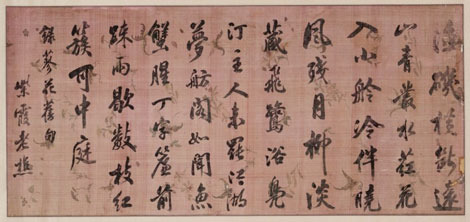 漁磯橫遠
山青叢水葒花
入小舲冷伴曉
風殘月柳淡
藏飛鷺浴鳧
汀主人未罷江湖
夢舫閣如聞魚
蟹腥丁字簾前
疎雨歇數枝紅
簇可中庭
錄蓼花舊句
紫霞老樵